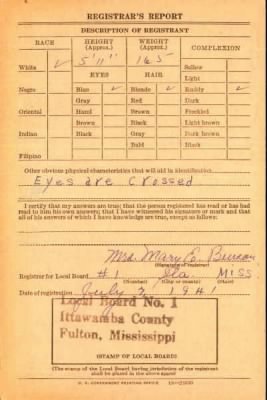 REGISTRAR'S REPORT
DESCRIPTION OF REGISTRANT
RACE HEIGHT (Approx.) WEIGHT (Approx.) COMPLEXION
White ✓ 5' 11" 165 Sallow
EYES HAIR Light
Negro Blue ✓ Blonde ✓ Ruddy ✓
Gray Red Dark
Oriental Hazel Brown Freckled
Brown Black Light brown
Indian Black Gray Dark brown
Bald Black
Filipino
Other obvious physical characteristics that will aid in identification
Eyes are Crossed
I certify that my answers are true; that the person registered has read or has had
read to him his own answers; that I have witnessed his signature or mark and that
all of his answers of which I have knowledge are true, except as follows:
Mrs. Mary C.
(Signature of registrar)
Registrar for Local Board #1 Ita. Miss.
(Number) (City or county) (State)
Date of registration July 2, 1941
Local Board No. 1
Ittawamba County
Fulton, Mississippi
(STAMP OF LOCAL BOARD)
(The stamp of the Local Board having jurisdiction of the registrant
shall be placed in the above space)
U. S. GOVERNMENT PRINTING OFFICE